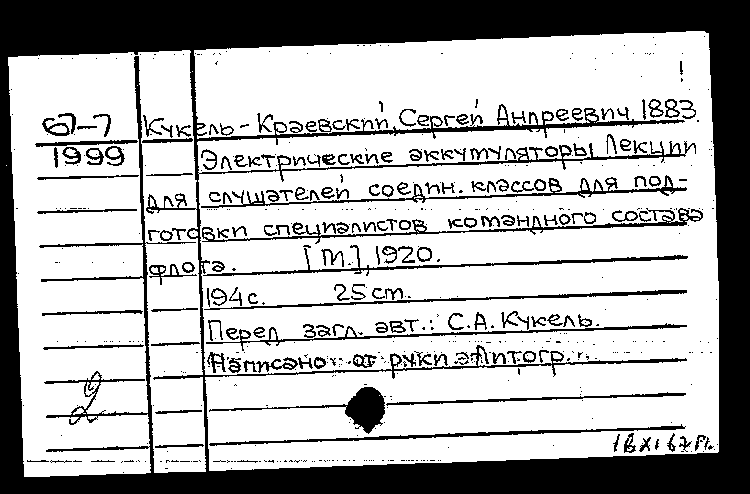 67-7 Кукель-Краевский, Сергей Андреевич, 1883.
1999 Электрические аккумуляторы. Лекции
для слушателей соедин. классов для под-
готовки специалистов командного состава
флота. [М.], 1920.
194 с. 25 см.
Перед загл. авт.: С.А. Кукель.
Написано от руки. Литогр.
2